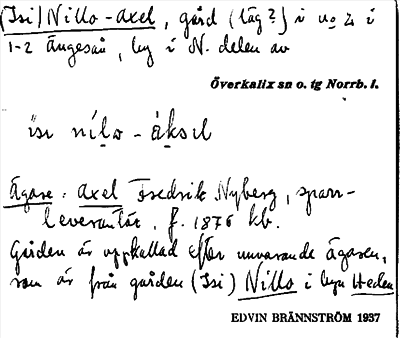 (Isi) Nillo-Axel, gård (läg?) i no 2 i
1-2 Ängesån, by i N. delen av
Överkalix sn o. tg Norrb. l.
isı nílo - àksɩl
Ägare: Axel Fredrik Nyberg, sparr-
leverantör, f. 1876 hb.
Gården är uppkallad efter nuvarande ägaren,
som är från gården (Isi) Nillo i byn Heden
EDVIN BRÄNNSTRÖM 1937